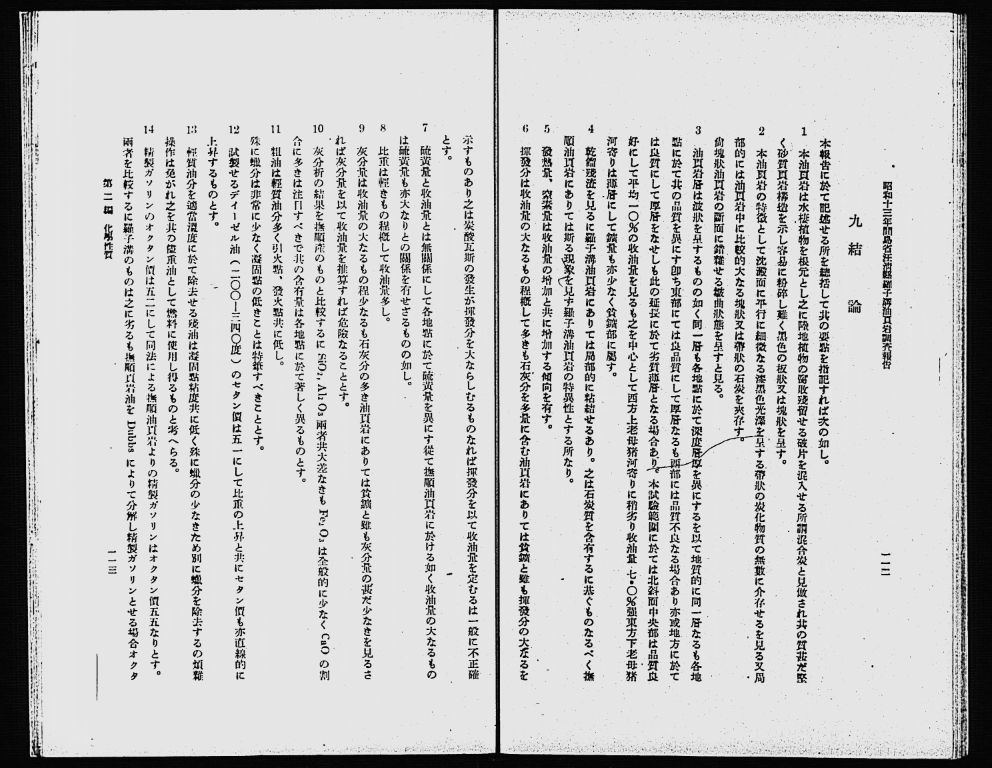 昭和十三年間島省汪淸縣羅子溝油頁岩調査報告
一一二
九 結 論
本報吿に於て記述せる所を總括して其の要點を摘記すれば次の如し。
1 本油頁岩は水棲植物を根元とし之に陸地植物の腐敗殘留せる破片を混入せる所謂混合炭と見做され其の質甚だ堅
く砂質頁岩構造を示し容易に粉碎し難く黑色の板狀又は塊狀を呈す。
2 本油頁岩の特徴として沈澱面に平行に細微なる漆黑色光澤を呈する帶狀の炭化物質の無數に介存せるを見る又局
部的には油頁岩中に比較的大なる塊狀又は帶狀の石炭を夾存す。
尙塊狀油頁岩の斷面に錯雜せる皺曲狀態を呈すと見る。
3 油頁岩層は波狀を呈するものの如く同一層も各地點に於て深度層厚を異にするを以て地質的に同一層なるも各地
點に於て其の品質を異にす卽ち東部にては良品質にして厚層なるも西部には品質不良なる場合あり亦或地方に於て
は良質にして厚層をなせしも此の延長に於て劣質薄層となる場合あり。本試驗範圍に於ては北斜面中央部は品質良
好にして平均一〇%の收油量を見るも之を中心として西方上老母猪河寄りに稍劣り收油量七・〇%强東方下老母猪
河寄りは薄層にして鑛量も亦少なく貧鑛部に屬す。
4 乾餾殘渣を見るに羅子溝油頁岩にありては局部的に粘結せるあり。之は石炭質を含有するに基くものなるべく撫
順油頁岩にありては斯る現象を見す羅子溝油頁岩の特異性とする所なり。
5 發熱量、窒素量は收油量の增加と共に增加する傾向を有す。
6 揮發分は收油量の大なるもの程槪して多きも石灰分を多量に含む油頁岩にありては貧鑛と雖も揮發分の大なるを
示すものあり之は炭酸瓦斯の發生が揮發分を大ならしむるものなれば揮發分を以て收油量を定むるは一般に不正確
とす。
7 硫黃量と收油量とは無關係にして各地點に於て硫黃量を異にす從て撫順油頁岩に於ける如く收油量の大なるもの
は硫黃量も亦大なりとの關係を有せざるものの如し。
8 比重は輕きもの程槪して收油量多し。
9 灰分量は收油量の大なるもの程少なるも石灰分の多き油頁岩にありては貧鑛と雖も灰分量の甚だ少なきを見るさ
れば灰分量を以て收油量を推算すれば危險なることとす。
10 灰分析の結果を撫順產のものと比較するに SiO₂, Al₂ O₃ 兩者共大差なきも Fe₂ O₃ は全般的に少なく CaO の割
合に多きは注目すべきで共の含有量は各地點に於て著しく異るものとす。
11 粗油は輕質油分多く引火點、發火點共に低し。
殊に蠟分は非常に少なく凝固點の低きことは特筆すべきこととす。
12 試製せるデイーゼル油(二〇〇—三四〇度)のセタン價は五一にして比重の上昇と共にセタン價も亦直線的に
上昇するものとす。
13 輕質油分を適當溫度に於て除去せる殘油は凝固點粘度共に低く殊に蠟分の少なきため別に蠟分を除去するの煩雜
操作は免がれ之を其の儘重油として燃料に使用し得るものと考へらる。
14 精製ガソリンのオクタン價は五二にして同法による撫順油頁岩よりの精製ガソリンはオクタン價五五なりとす。
兩者を比較するに羅子溝のものは之に劣るも撫順頁岩油を Dubbs によりて分解し精製ガソリンとせる場合オクタ
第二編 化學性質
一一三